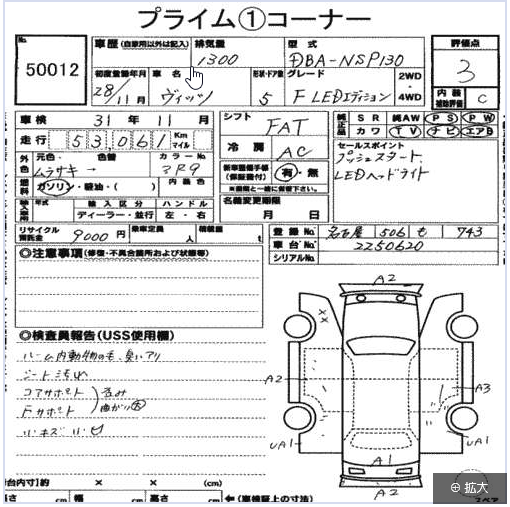 プライム①コーナー
No.
50012
車歴 (自家用以外は記入)
排気量
1300
型式
DBA-NSP130
評価点
3
初度登録年月
28/11月
車名
ヴィッツ
形状・ドア数
5
グレード
F LEDエディション
2WD
・
4WD
内装
補助評価
C
車検 31年 11月
走行 53,061 Km マイル
シフト
FAT
冷房
AC
純正品
SR 純AW PS PW
カワ TV ナビ エアB
セールスポイント
プッシュスタート
LEDヘッドライト
外色
元色・ 色替
ムラサキ→
カラーNo.
3R9
燃料
ガソリン・軽油・( )
内装色
新車整備手帳
(保証書付)
有・無
※原則と一緒に備帯下さい。
輸入車用
年式
輸入区分
ディーラー・並行
ハンドル
左・右
名義変更期限
月 日
リサイクル
預託金
9000円
乗車定員
人
積載量
t
登録No.
名古屋 506 も 743
車台No.
2250620
シリアルNo.
◎注意事項 (修復・不具合箇所および状態等)
◎検査員報告 (USS使用欄)
ルーム内動物の毛、臭いアリ
シート汚れ
コアサポート
Fサポート
歪み
曲がり大
小キズ 小凹
A2
××
A2
A3
UA1
UA1
A1
A2
荷台内寸)約 × × (cm)
長さ cm 幅 cm 高さ cm ←(車検証上の寸法)
スペア
⊕ 拡大